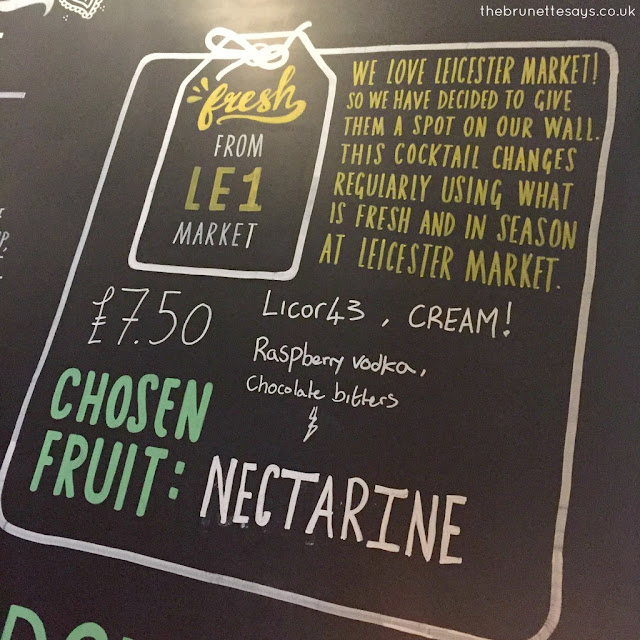 thebrunettesays.co.uk
fresh
FROM
LE1
MARKET
WE LOVE LEICESTER MARKET!
SO WE HAVE DECIDED TO GIVE
THEM A SPOT ON OUR WALL.
THIS COCKTAIL CHANGES
REGULARLY USING WHAT
IS FRESH AND IN SEASON
AT LEICESTER MARKET.
£7.50
Licor43, CREAM!
Raspberry vodka,
Chocolate bitters
CHOSEN
FRUIT: NECTARINE